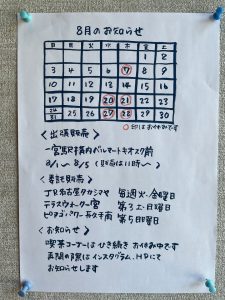 8月のお知らせ
日 月 火 水 木 金 土
1 2
3 4 5 6 7 8 9
10 11 12 13 14 15 16
17 18 19 20 21 22 23
24/31 25 26 27 28 29 30
○印はお休みです
〈出張販売〉
一宮駅構内パルマートキオスク前
8/1〜8/5 (販売は11時〜)
〈委託販売〉
JR名古屋タカシマヤ 毎週火・金曜日
テラスウォーク一宮 第3土・日曜日
長久手南 第5日曜日
〈お知らせ〉
喫茶コーナーはひき続きお休み中です
再開の際はインスタグラム、HPにて
お知らせします